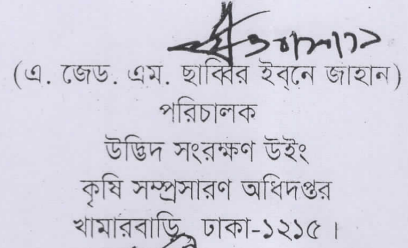 (এ. জেড. এম. ছাব্বির ইবনে জাহান)
পরিচালক
উদ্ভিদ সংরক্ষণ উইং
কৃষি সম্প্রসারণ অধিদপ্তর
খামারবাড়ি, ঢাকা-১২১৫।